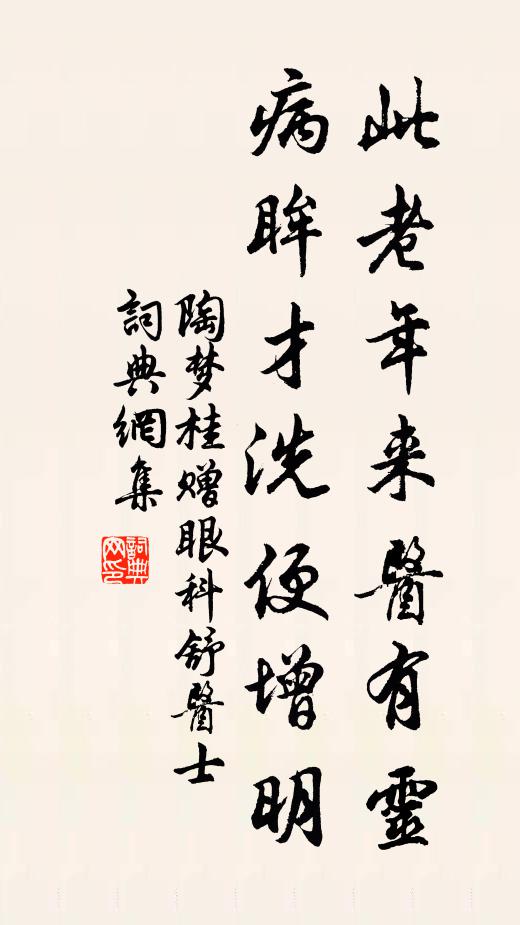 此老年来醫有靈
病眸才洗便增明
陶梦桂赠眼科舒醫士
詞典網集
詞典网印